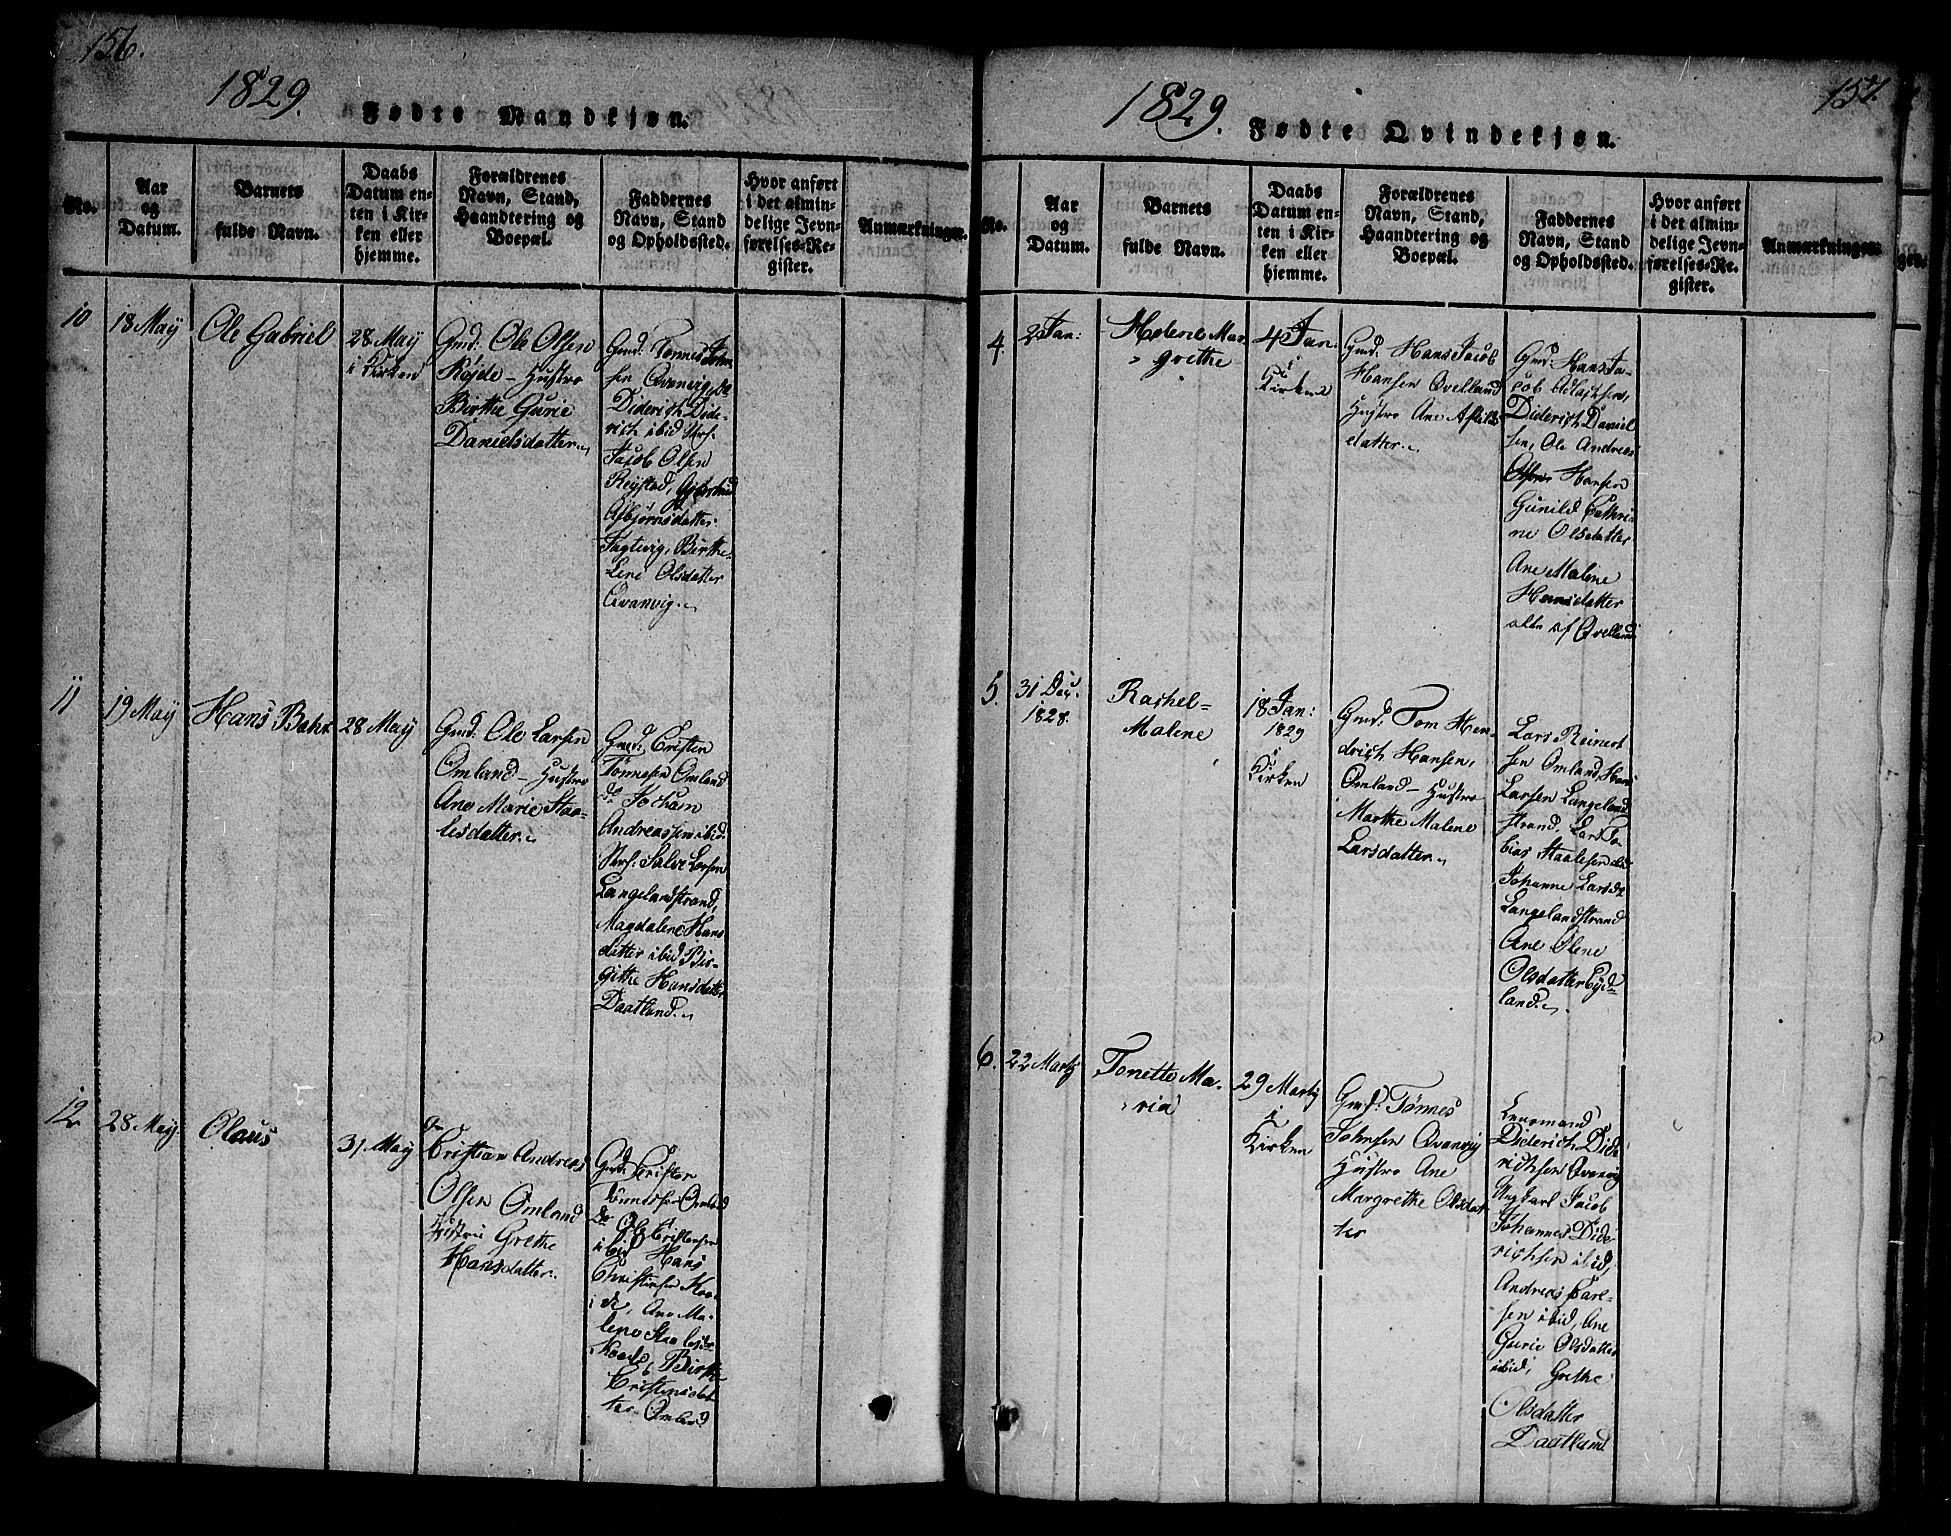 156.
1829.
Fødte Mandkjøn.
No.
Aar
og
Datum.
Barnets
fulde Navn.
Daabs
Datum en-
ten i Kir-
ken eller
hjemme.
Forældrenes
Navn, Stand,
Haandtering og
Boepæl.
Faddernes
Navn, Stand
og Opholdssted.
Hvor anført
i det almin-
delige Jevn-
førelses-Re-
gister.
Anmærkninger.
10
18 Maÿ
Ole Gabriel
28 Maÿ
i Kirken
Gmd: Ole Olsen
Røjde - Hustro
Birthe Gurie
Danielsdatter
Gmd: Tønnes John
sen Qvanvig, do
Diderich Dide-
rich ibid
Jacob Olsen
Reÿstad,
Asbjørnsdatter
Birthe
Lene Olsdatter
Qvanvig.
11
19 Maÿ
Hans Bahr
28 Maÿ
Gmd: Ole Larsen
Omland - Hustro
Ane Marie Staa-
lesdatter.
Gmd: Cristen
Tønnesen Omland
do Jocham
Andreassen ibid
Salve Larsen
Langelandstrand,
Magdalene Hans
datter ibid Bir-
githe Hansdatter
Daatland.
12
28 Maÿ
Olaus
31 Maÿ
Cristian Andreas
Olsen Omland
Hustru Grethe
Hansdatter.
Gmd: Crister
Tønnessen Omland
Do Ole Cristensen
ibid Hans
Christensen
Ane Ma-
lene Staalesdr
Birthe
Cristensdat
ter Omland
157.
1829.
Fødte Qvindekjøn.
No.
Aar
og
Datum.
Barnets
fulde Navn.
Daabs
Datum en-
ten i Kir-
ken eller
hjemme.
Forældrenes
Navn, Stand,
Haandtering og
Boepæl.
Faddernes
Navn, Stand
og Opholdssted.
Hvor anført
i det almin-
delige Jevn-
førelses-Re-
gister.
Anmærkninger.
4.
2 Jan:
Helene Mar
grethe
4 Jan.
i
Kirken
Gmd: Hans Jacob
Hansen Qvelland
Hustro Ane
datter.
Gmd: Hans Ja-
cob
Diderich Daniel
sen, Ole Andreas
Hansen
Gunild Cathri-
ne Olsdatter
Ane Malene
Hansdatter
alle af Qvelland
5.
31 Dec.
1828.
Rachel=
Malene
18 Jan:
1829
i
Kirken
Gmd: Tom Hen-
drich Hansen,
Omland - Hustro
Marthe Malene
Larsdatter.
Lars Reinert
sen Omland, Hans
Larsen Langeland
strand, Lars To-
bias Staalesen ibid
Johanne Larsdr
Langelandstrand
Ane Olene
Olsdatter Eÿd=
land.
6.
22 Martj
Tonette Ma-
ria
29 Martj
i
Kirken
Gmd: Tønnes
Johnsen Qvanvig
Hustro Ane
Margrethe Olsdat
ter
Diderich Dide
richsen Qvanvig
Ungkarl Jacob
Johannes Dide-
richsen ibid,
Andreas Carl-
sen ibid, Ane
Gurie Olsdatter
ibid, Grethe
Olsdatter
Daatland